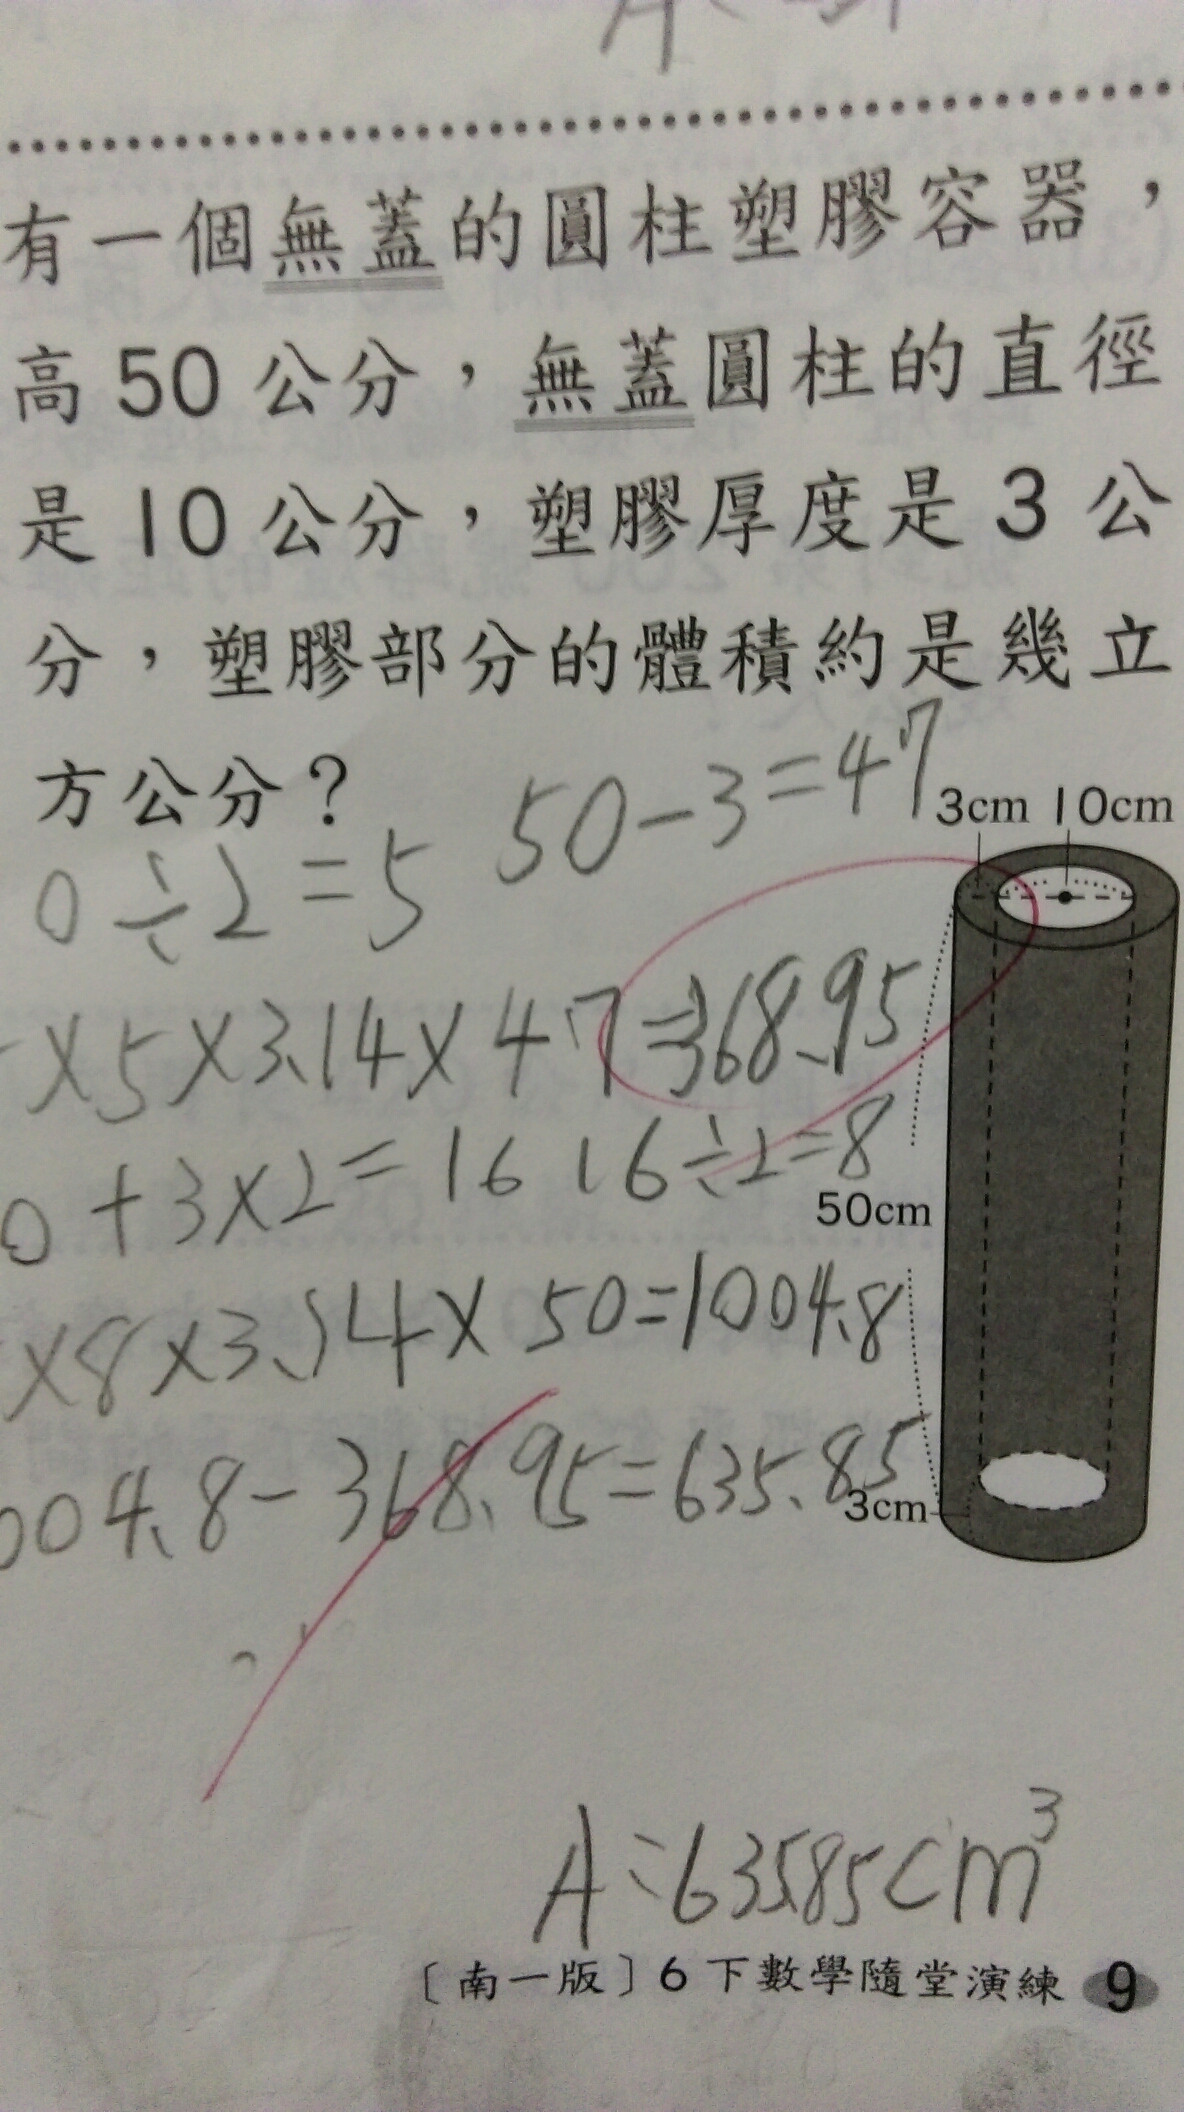 有一個無蓋的圓柱塑膠容器，
高50公分，無蓋圓柱的直徑
是10公分，塑膠厚度是3公
分，塑膠部分的體積約是幾立
方公分？
50-3=47
3cm 10cm
0÷2=5
×5×3.14×47=368.95
0+3×2=16 16÷2=8
50cm
×8×3.14×50=1004.8
004.8-368.95=635.85
3cm
A:635.85cm³
〔南一版〕6下數學隨堂演練 9